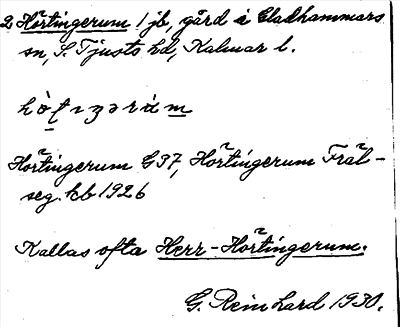 2. Hörtingerum 1 jb, gård i Gladhammars
sn, S. Tjusts hd, Kalmar l.
Hörtingerum G37, Hörtingerum Fräl-
seg. kb 1926
Kallas ofta Herr-Hörtingerum.
G. Reinhard 1930.